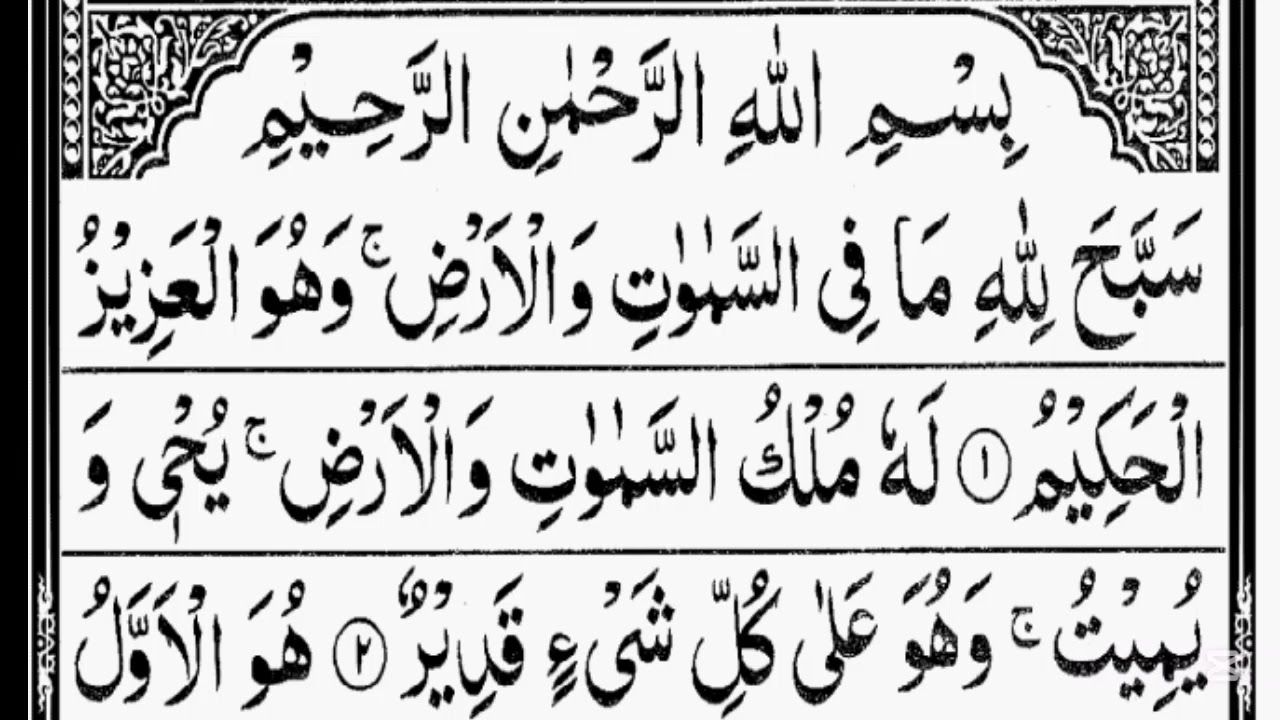 بِسْمِ اللهِ الرَّحْمٰنِ الرَّحِيْمِ
سَبَّحَ لِلّٰهِ مَا فِى السَّمٰوٰتِ وَالْاَرْضِ ۚ وَهُوَ الْعَزِيْزُ
الْحَكِيْمُ ۝۱ لَهٗ مُلْكُ السَّمٰوٰتِ وَالْاَرْضِ ۚ يُحْيٖ وَ
يُمِيْتُ ۚ وَهُوَ عَلٰى كُلِّ شَىْءٍ قَدِيْرٌ ۝۲ هُوَ الْاَوَّلُ